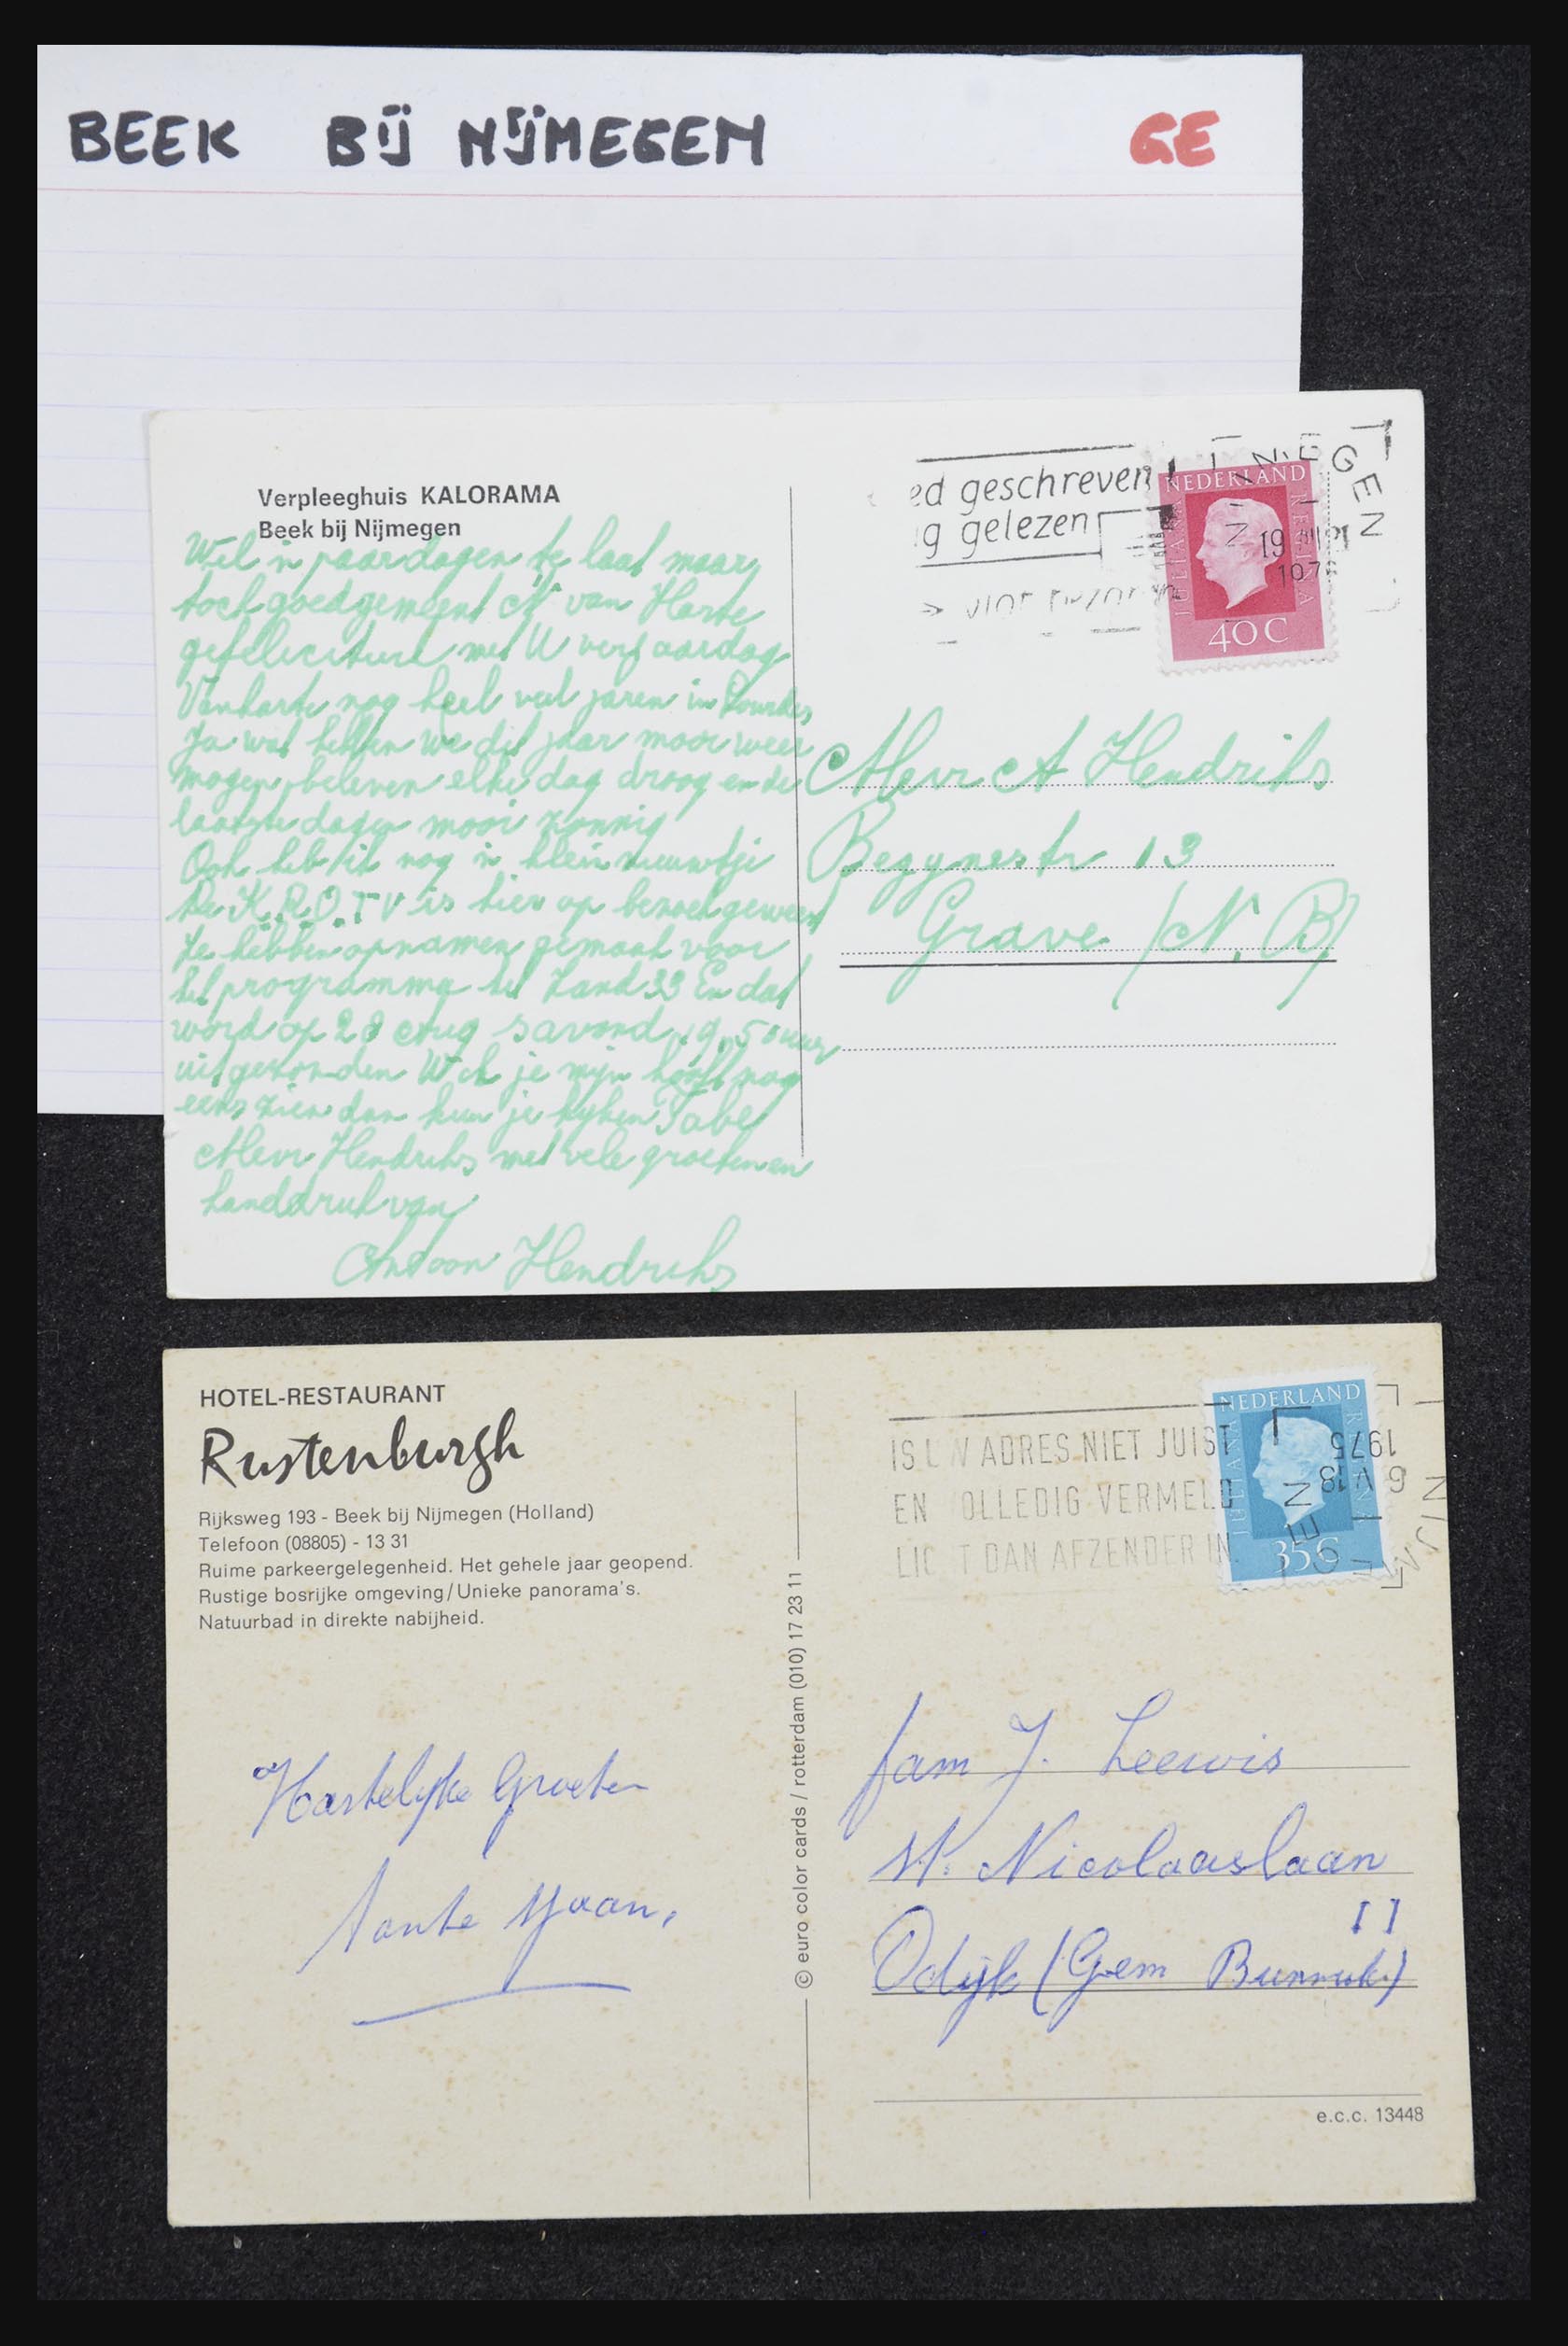 BEEK BIJ NIJMEGEN GE
Verpleeghuis KALORAMA
Beek bij Nijmegen
Wel 'n paar dagen te laat maar
toch goedgemeent M van Harte
gefeliciteerd met U verjaardag
Vanharte nog heel veel jaren in Lourdes
Ja wat hebben we dit jaar mooi weer
mogen beleven elke dag droog en de
laatste dagen mooi zonnig
Ook heb ik nog 'n klein nieuwtje
De K.R.O. TV is hier op bezoek geweest
Ze hebben opnamen gemaakt voor
het programma het Zand 33 En dat
word op 28 Aug savond 19.50 uur
uitgezonden Wil je mijn hooft nog
eens zien dan kun je kyken Tabe
Mevr Hendriks met vele groeten en
handdruk van
Antoon Hendriks
ed geschreven
g gelezen
NIJMEGEN
19
NEDERLAND
JULIANA REGINA
40C
Mevr A Hendriks
Begynestr 13
Grave (N.B)
HOTEL-RESTAURANT
Rustenburgh
Rijksweg 193 - Beek bij Nijmegen (Holland)
Telefoon (08805) - 13 31
Ruime parkeergelegenheid. Het gehele jaar geopend.
Rustige bosrijke omgeving/Unieke panorama's.
Natuurbad in direkte nabijheid.
Hartelyke Groeten
Tante Maan.
© euro color cards / rotterdam (010) 17 23 11
IS UW ADRES NIET JUIST
EN VOLLEDIG VERMELD
LICHT DAN AFZENDER IN
NEDERLAND
JULIANA REGINA
35C
NIJMEGEN
6 V 18
1975
fam J. Leewis
St. Nicolaaslaan
11
Odijk (Gem Bunnik)
e.c.c. 13448